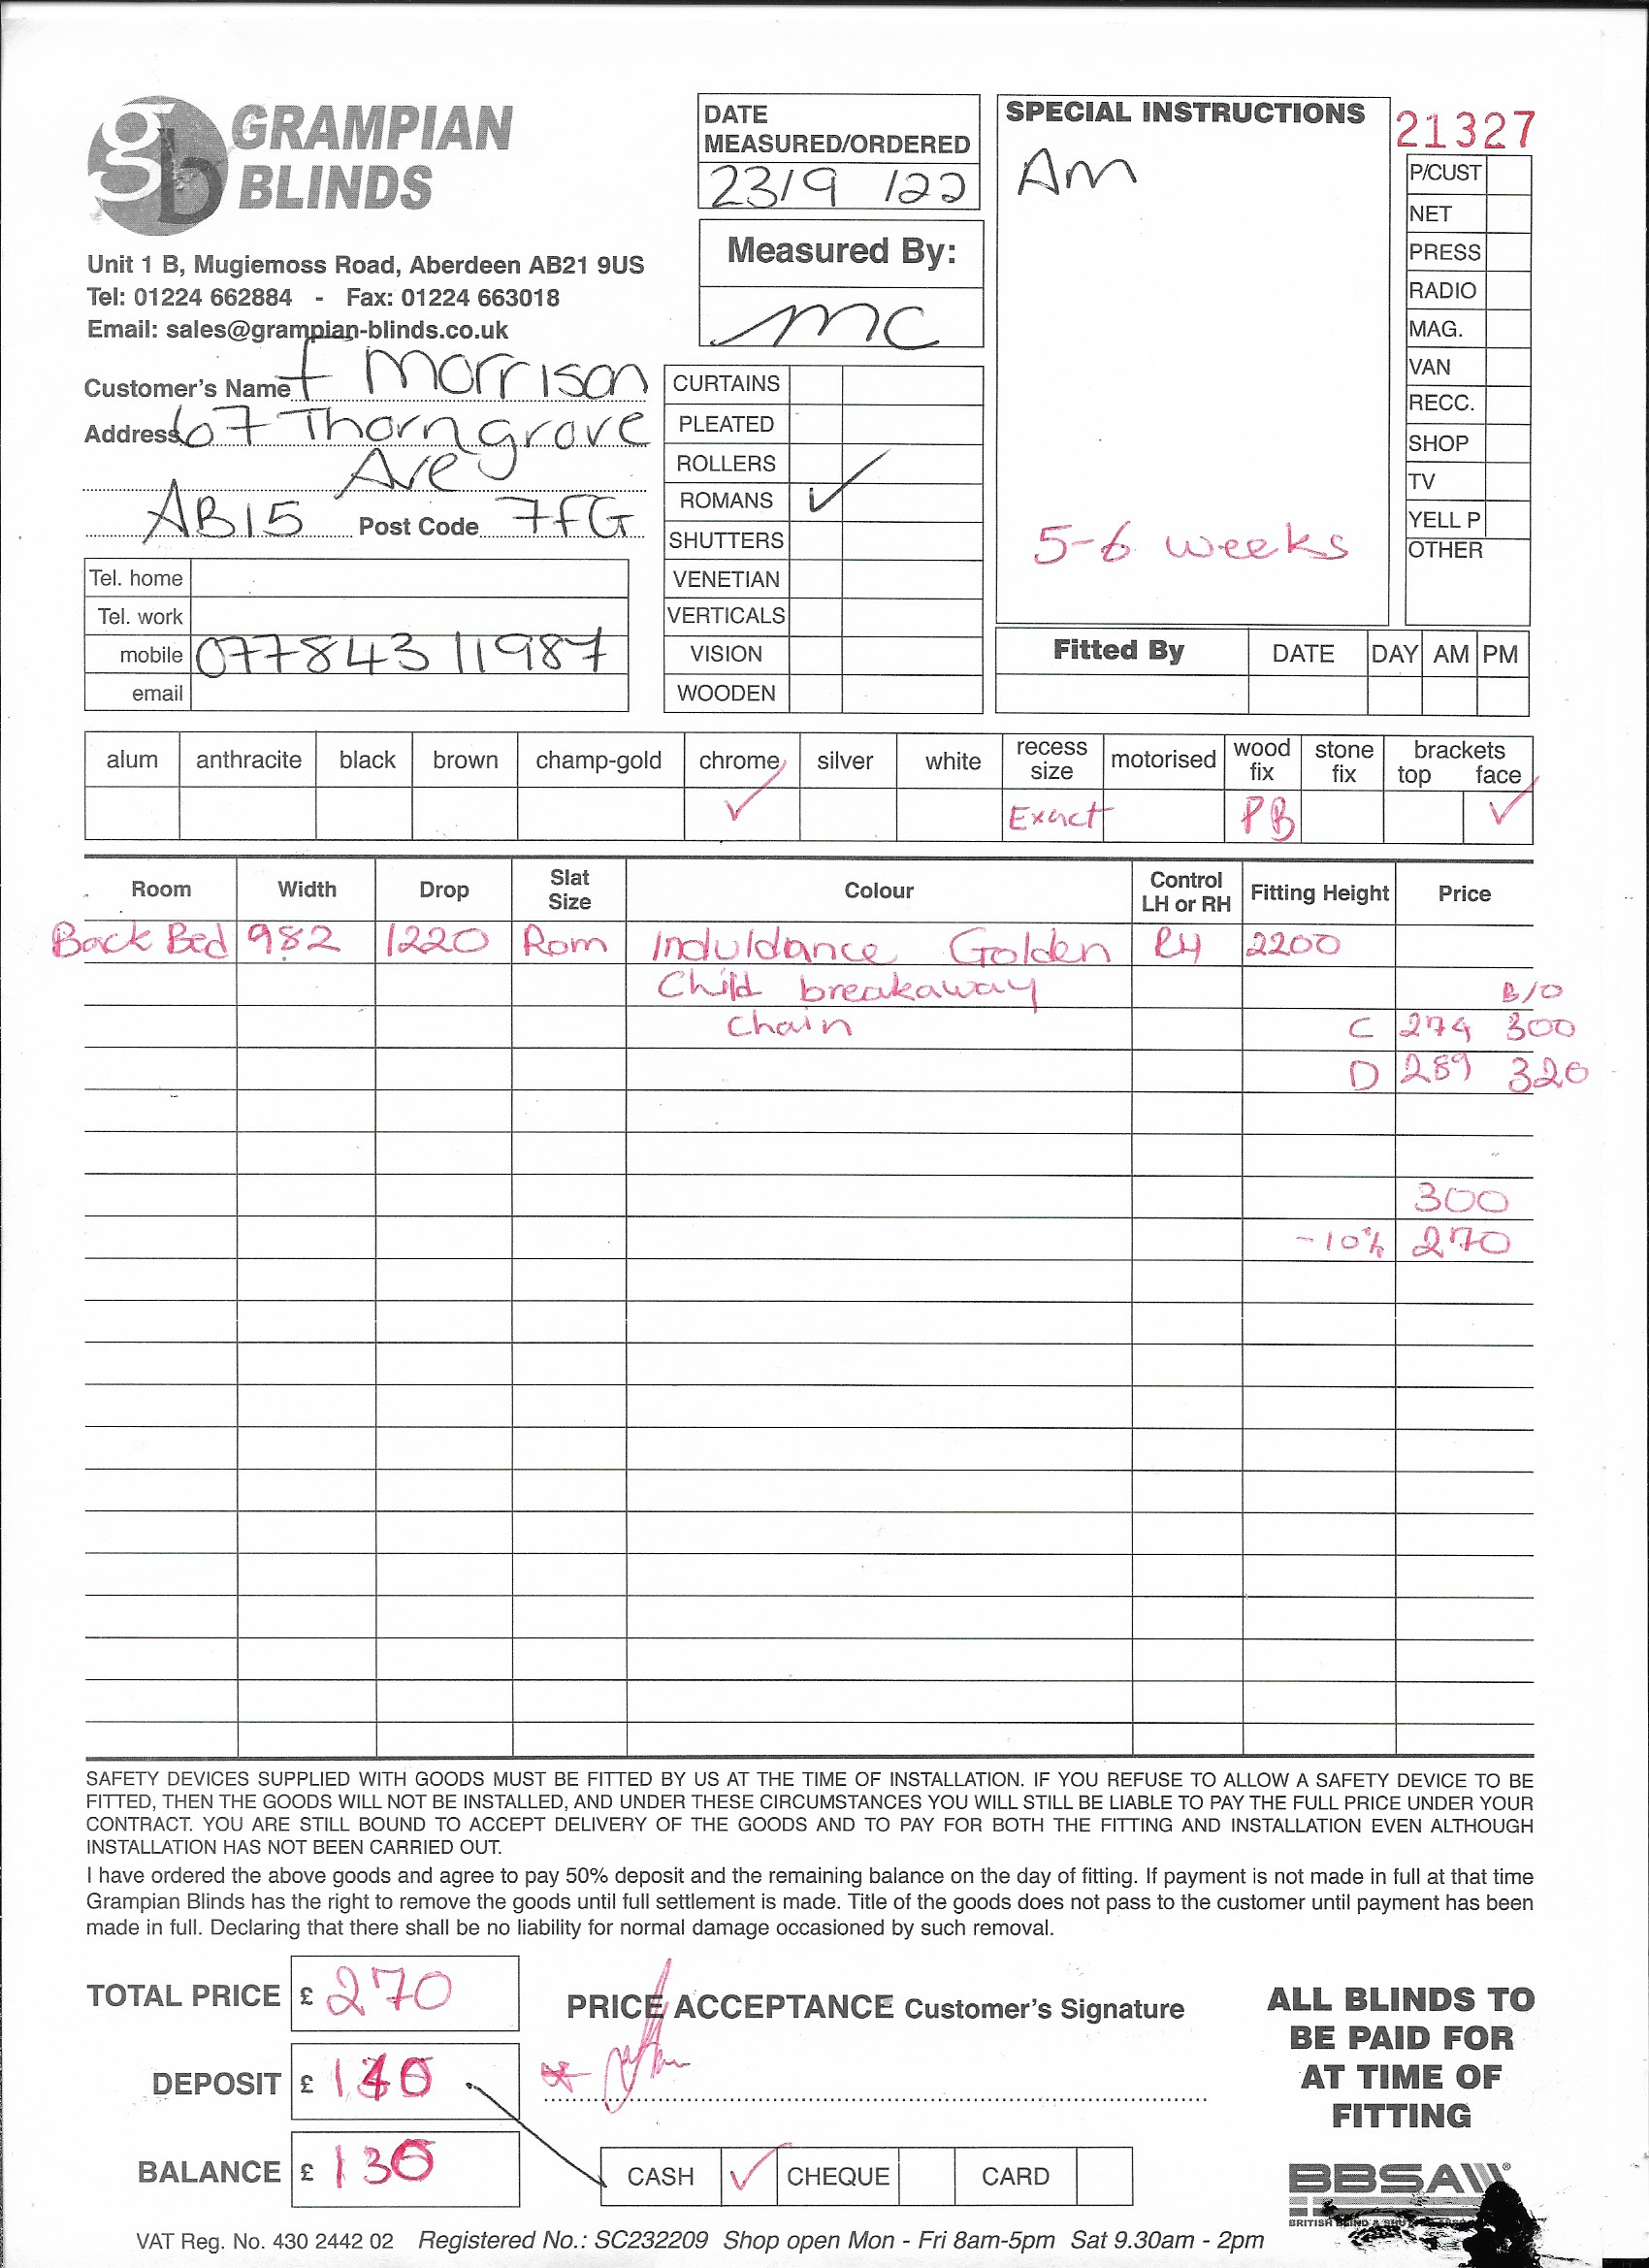 gb GRAMPIAN
BLINDS
Unit 1 B, Mugiemoss Road, Aberdeen AB21 9US
Tel: 01224 662884 - Fax: 01224 663018
Email: sales@grampian-blinds.co.uk
Customer's Name F Morrison
Address 67 Thorngrove
Ave
AB15 Post Code 7FG
Tel. home
Tel. work
mobile 077843 11987
email
DATE
MEASURED/ORDERED
23/9 /22
Measured By:
MC
CURTAINS
PLEATED
ROLLERS
ROMANS ✓
SHUTTERS
VENETIAN
VERTICALS
VISION
WOODEN
SPECIAL INSTRUCTIONS
Am
5-6 weeks
21327
P/CUST
NET
PRESS
RADIO
MAG.
VAN
RECC.
SHOP
TV
YELL P
OTHER
Fitted By DATE DAY AM PM
alum anthracite black brown champ-gold chrome silver white recess size motorised wood fix stone fix brackets top face
✓ Exact PB ✓
Room Width Drop Slat Size Colour Control LH or RH Fitting Height Price
Back Bed 982 1220 Rom Induldance Golden RH 2200
Child breakaway B/O
Chain C 274 300
D 289 320
300
-10% 270
SAFETY DEVICES SUPPLIED WITH GOODS MUST BE FITTED BY US AT THE TIME OF INSTALLATION. IF YOU REFUSE TO ALLOW A SAFETY DEVICE TO BE
FITTED, THEN THE GOODS WILL NOT BE INSTALLED, AND UNDER THESE CIRCUMSTANCES YOU WILL STILL BE LIABLE TO PAY THE FULL PRICE UNDER YOUR
CONTRACT. YOU ARE STILL BOUND TO ACCEPT DELIVERY OF THE GOODS AND TO PAY FOR BOTH THE FITTING AND INSTALLATION EVEN ALTHOUGH
INSTALLATION HAS NOT BEEN CARRIED OUT.
I have ordered the above goods and agree to pay 50% deposit and the remaining balance on the day of fitting. If payment is not made in full at that time
Grampian Blinds has the right to remove the goods until full settlement is made. Title of the goods does not pass to the customer until payment has been
made in full. Declaring that there shall be no liability for normal damage occasioned by such removal.
TOTAL PRICE £ 270
DEPOSIT £ 140
BALANCE £ 130
PRICE ACCEPTANCE Customer's Signature
CASH ✓ CHEQUE CARD
ALL BLINDS TO
BE PAID FOR
AT TIME OF
FITTING
BBSA
BRITISH
VAT Reg. No. 430 2442 02 Registered No.: SC232209 Shop open Mon - Fri 8am-5pm Sat 9.30am - 2pm